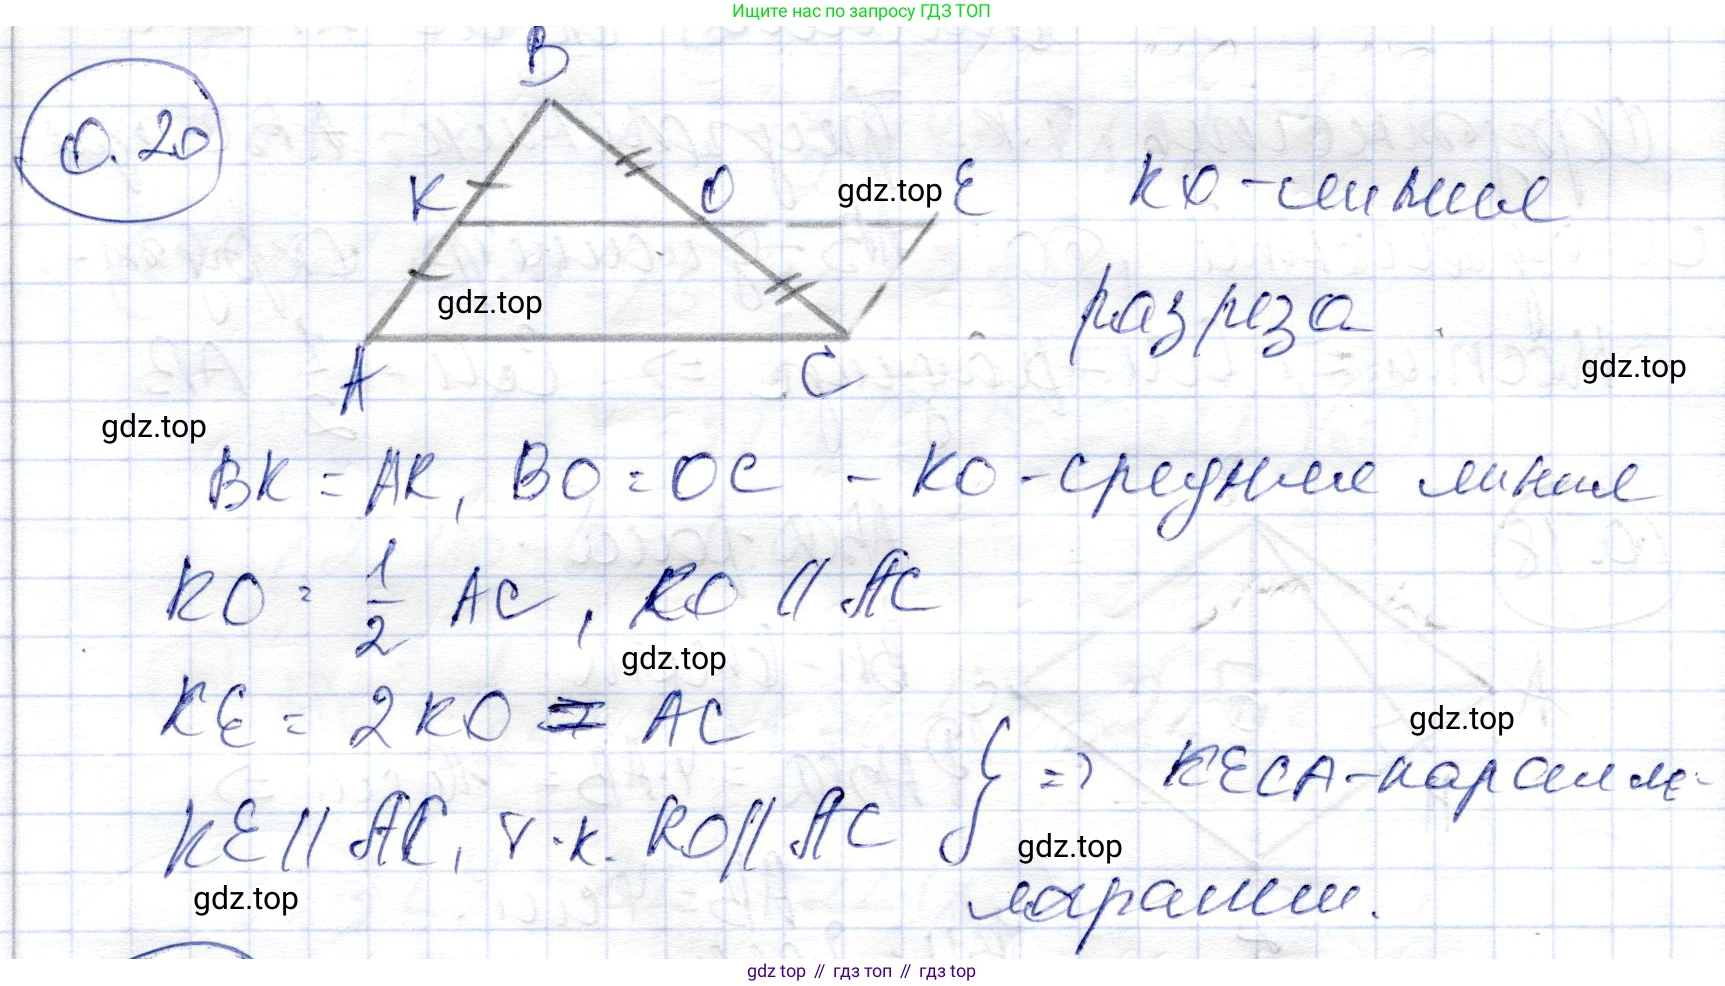 Ищите нас по запросу ГДЗ ТОП
0.20
B
K
O
gdz.top
E
КО - линия
gdz.top
разреза
A
C
gdz.top
gdz.top
BK = AK, BO = OC - KO - средняя линия
KO = 1/2 AC, KO || AC
gdz.top
KE = 2KO = AC
gdz.top
KE || AC, т.к. KO || AC } => KECA - паралле-
gdz.top
gdz.top
лограмм.
gdz top // гдз топ // gdz top